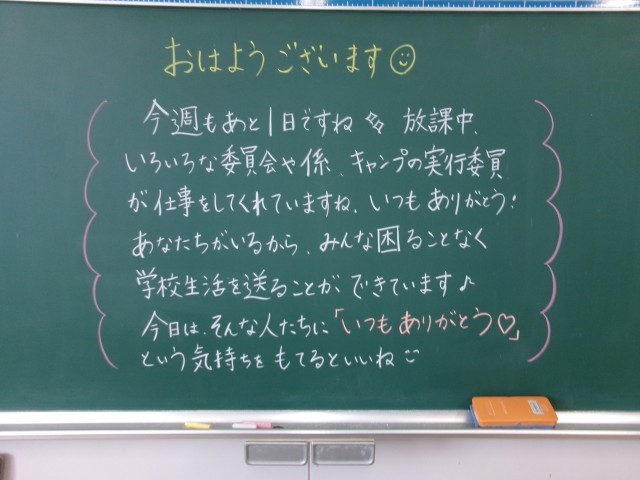 おはようございます☺
今週もあと1日ですね 放課中、
いろいろな委員会や係、キャンプの実行委員
が仕事をしてくれていますね。いつもありがとう!
あなたちがいるから、みんな困ることなく
学校生活を送ることができています♪
今日は、そんな人たちに「いつもありがとう♡」
という気持ちをもてるといいね